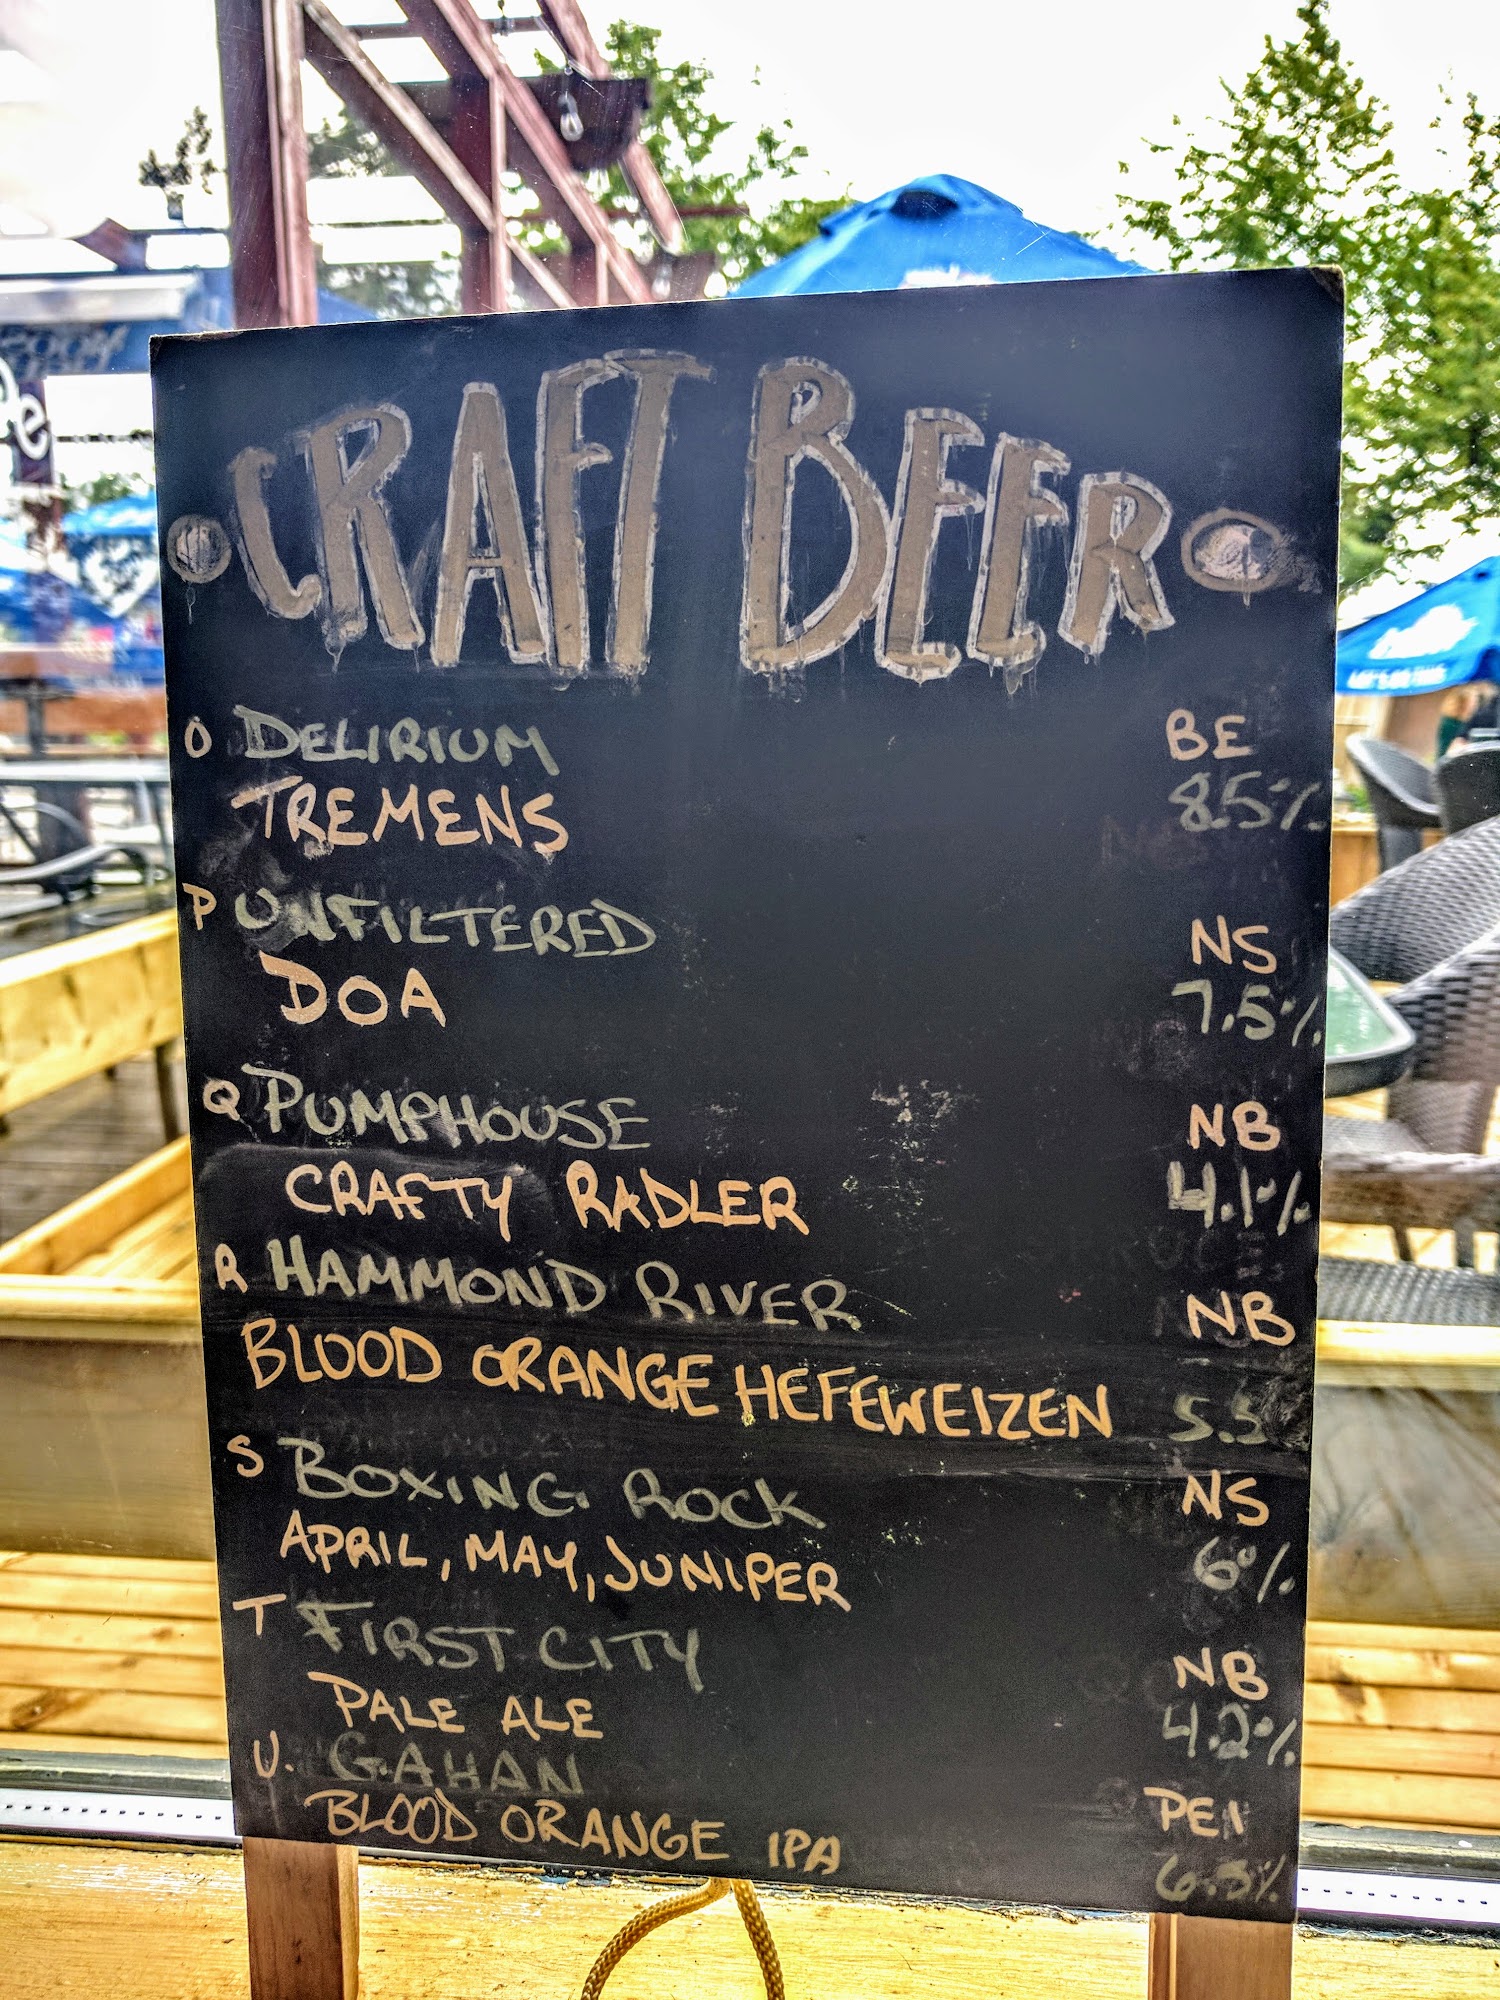 CRAFT BEER
O DELIRIUM BE
TREMENS 8.5%
P UNFILTERED NS
DOA 7.5%
Q PUMPHOUSE NB
CRAFTY RADLER 4.1%
R HAMMOND RIVER NB
BLOOD ORANGE HEFEWEIZEN 5.5
S BOXING ROCK NS
APRIL, MAY, JUNIPER 6%
T FIRST CITY NB
PALE ALE 4.2%
U. GAHAN PEI
BLOOD ORANGE IPA 6.5%